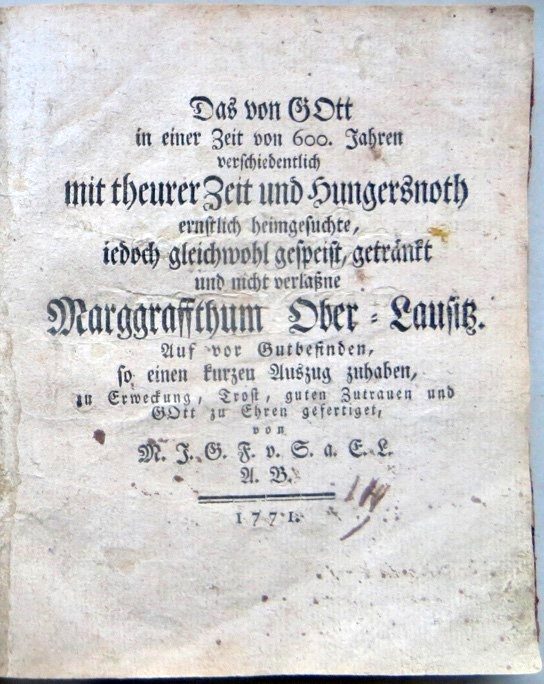 Das von GOtt
in einer Zeit von 600. Jahren
verschiedentlich
mit theurer Zeit und Hungersnoth
ernstlich heimgesuchte,
iedoch gleichwohl gespeist, getränkt
und nicht verlaßne
Marggraffthum Ober-Lausitz.
Auf vor Gutbefinden,
so einen kurzen Auszug zuhaben,
zu Erweckung, Trost, guten Zutrauen und
GOtt zu Ehren gefertiget,
von
M. J. G. F. v. S. a. E. L.
A. B.
1771.